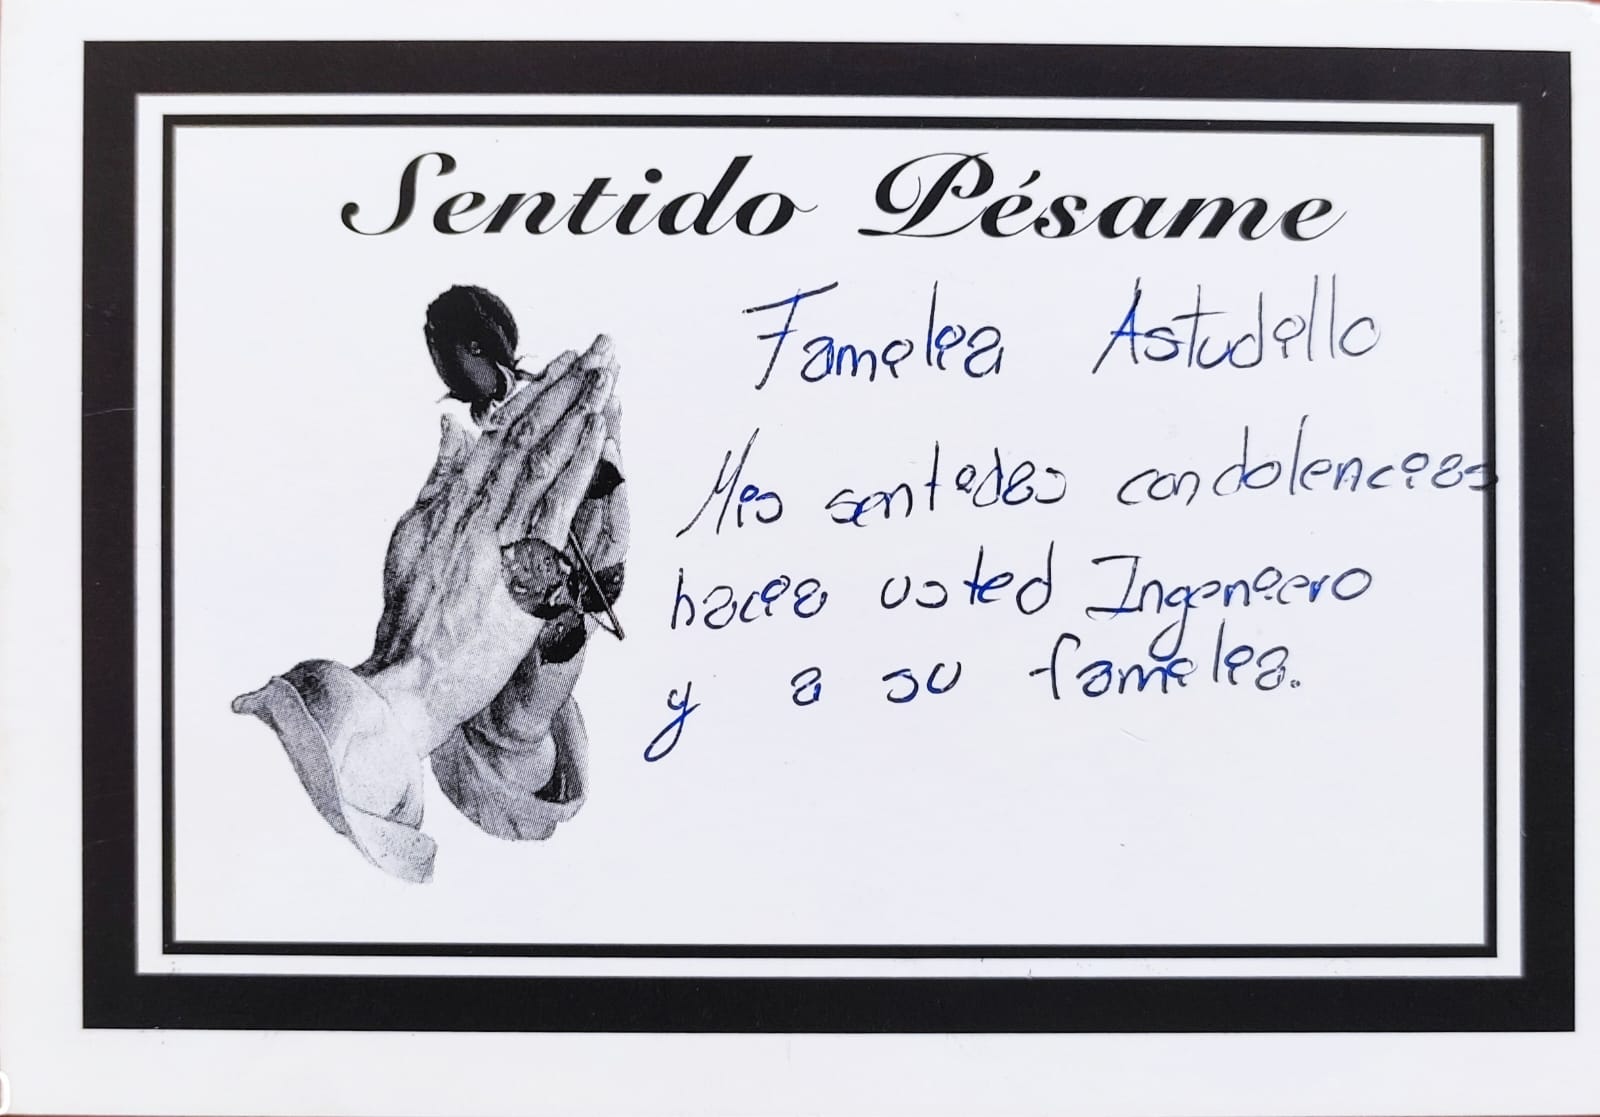 Sentido Pésame
Familia Astudillo
Mis sentidas condolencias
hacia usted Ingeniero
y a su familia.